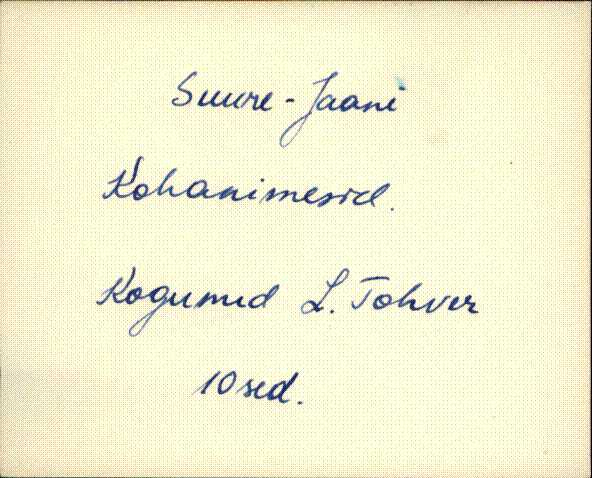 Suure-Jaani
Kohanimesid.
Kogunud L. Tohver
10 sed.